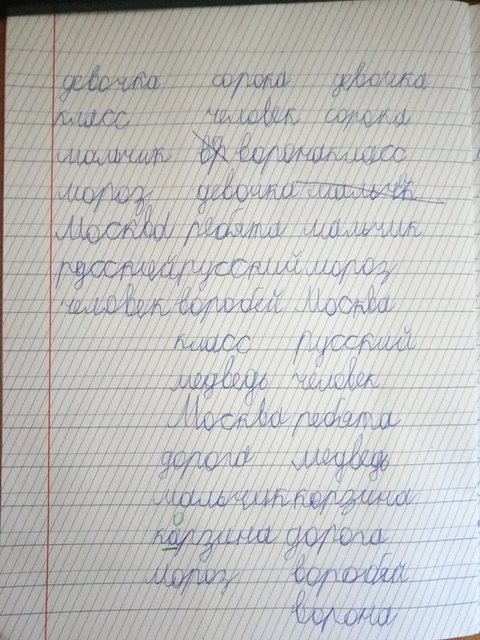 девочка сорока девочка
класс человек сорока
мальчик воронакласс
мороз девочка мальчик
Москва ребята мальчик
русскийрусский мороз
человек воробей Москва
класс русский
медведь человек
Москва ребята
дорога медведь
мальчик корзина
карзина дорога
мороз воробей
ворона